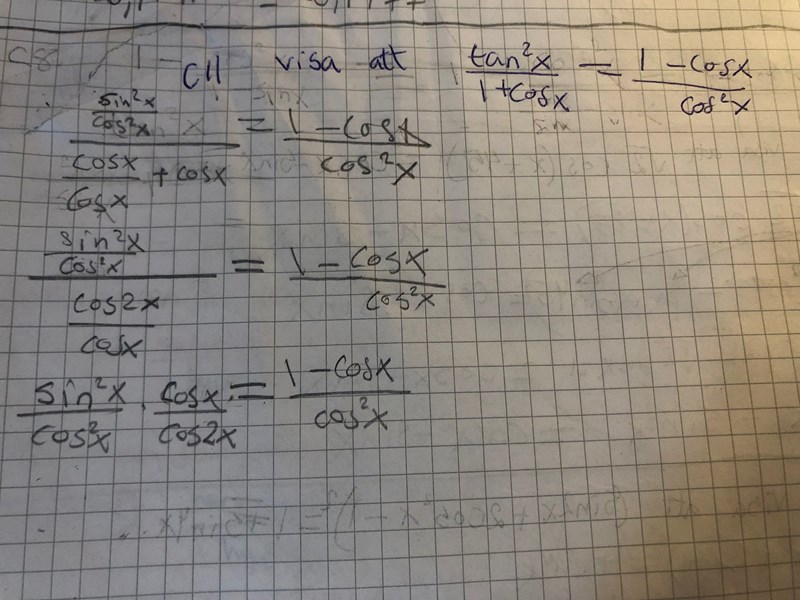 C11 visa att tan²x / 1+cosx = 1-cosx / cos²x
sin²x / cos²x / cosx / cosx + cosx = 1-cosx / cos²x
sin²x / cos²x / cos2x / cosx = 1-cosx / cos²x
sin²x / cos²x · cosx / cos2x = 1-cosx / cos²x